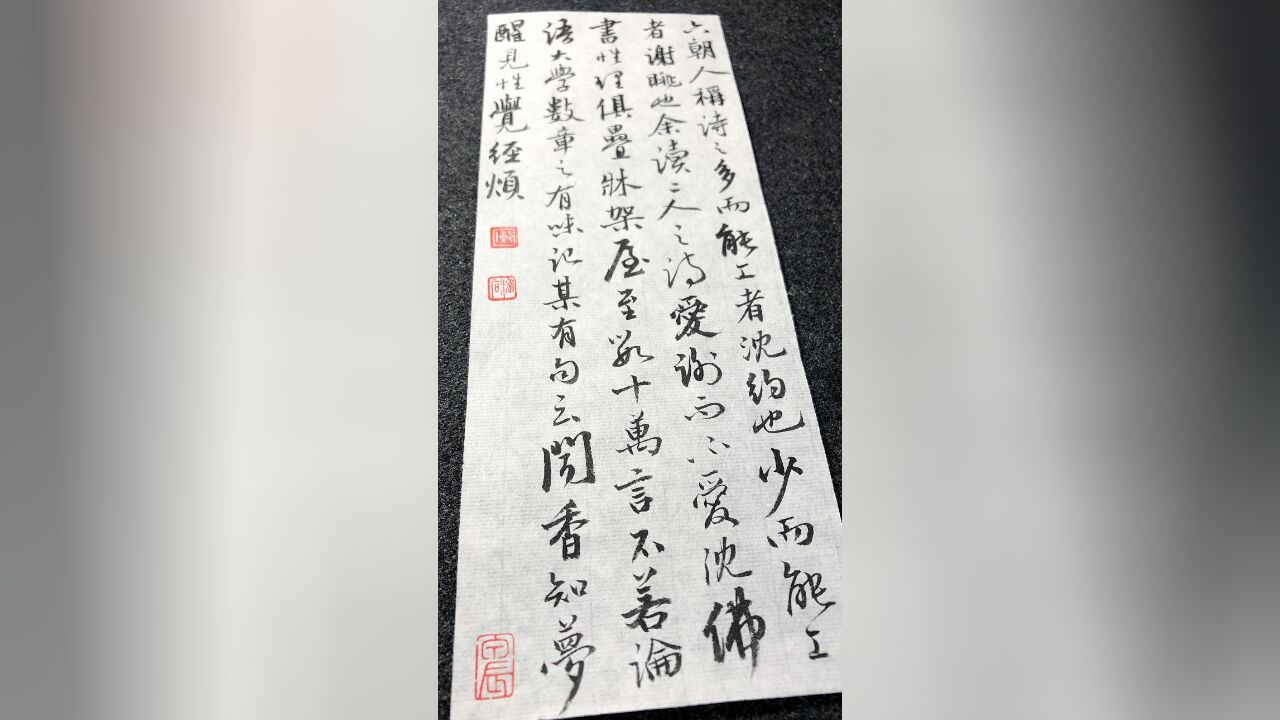 六朝人稱诗之多而能工者沈约也少而能工
者谢眺也余读二人之诗愛謝而不愛沈佛
書性理俱疊牀架屋至数十萬言不若論
语大学数章之有味记某有句云聞香知夢
醒見性覺經煩